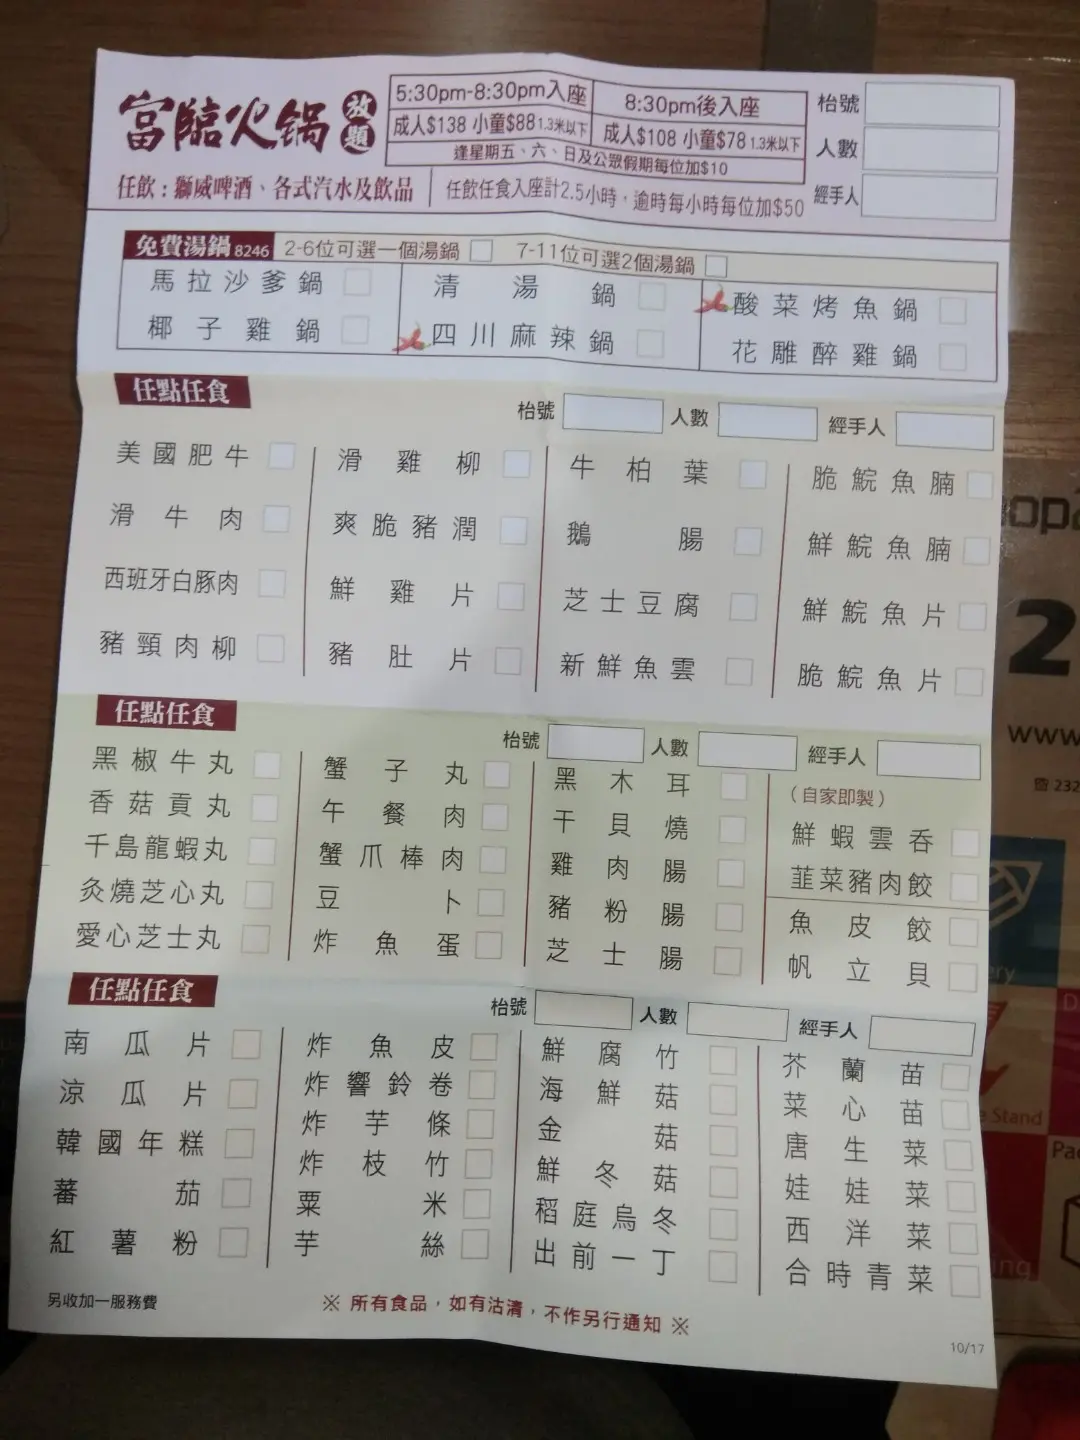 富臨火锅 放題
5:30pm-8:30pm入座
成人$138 小童$88 1.3米以下
8:30pm後入座
成人$108 小童$78 1.3米以下
逢星期五、六、日及公眾假期每位加$10
枱號
人數
經手人
任飲：獅威啤酒、各式汽水及飲品
任飲任食入座計2.5小時，逾時每小時每位加$50
免費湯鍋 8246 2-6位可選一個湯鍋 7-11位可選2個湯鍋
馬拉沙爹鍋
椰子雞鍋
清湯鍋
四川麻辣鍋
酸菜烤魚鍋
花雕醉雞鍋
任點任食
枱號 人數 經手人
美國肥牛
滑牛肉
西班牙白豚肉
豬頸肉柳
滑雞柳
爽脆豬潤
鮮雞片
豬肚片
牛柏葉
鵝腸
芝士豆腐
新鮮魚雲
脆鯇魚腩
鮮鯇魚腩
鮮鯇魚片
脆鯇魚片
任點任食
枱號 人數 經手人
黑椒牛丸
香菇貢丸
千島龍蝦丸
灸燒芝心丸
愛心芝士丸
蟹子丸
午餐肉
蟹爪棒肉
豆卜
炸魚蛋
黑木耳
干貝燒
雞肉腸
豬粉腸
芝士腸
（自家即製）
鮮蝦雲吞
韮菜豬肉餃
魚皮餃
帆立貝
任點任食
枱號 人數 經手人
南瓜片
涼瓜片
韓國年糕
蕃茄
紅薯粉
炸魚皮
炸響鈴卷
炸芋條
炸枝竹
粟米
芋絲
鮮腐竹
海鮮菇
金菇
鮮冬菇
稻庭烏冬
出前一丁
芥蘭苗
菜心苗
唐生菜
娃娃菜
西洋菜
合時青菜
另收加一服務費
※ 所有食品，如有沽清，不作另行通知 ※
10/17
2
www
232
e Stand